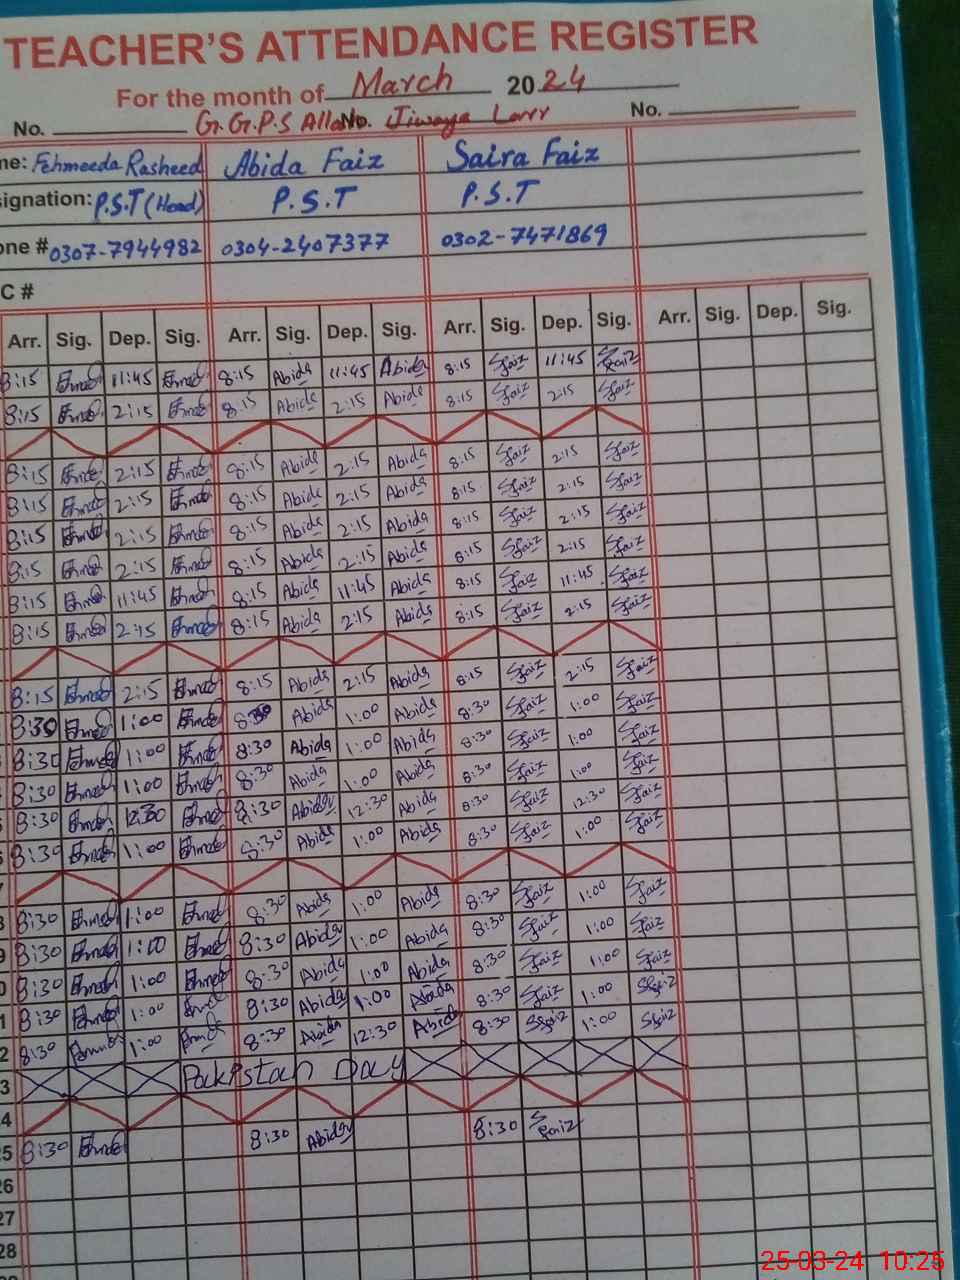 TEACHER'S ATTENDANCE REGISTER
For the month of March 2024
No. G.G.P.S No. Jiwaya Larr No.
me: Fehmeeda Rasheed Abida Faiz Saira Faiz
signation: P.S.T (Head) P.S.T P.S.T
one # 0307-7944982 0304-2407377 0302-7471869
C #
Arr. Sig. Dep. Sig. Arr. Sig. Dep. Sig. Arr. Sig. Dep. Sig. Arr. Sig. Dep. Sig.
8:15 11:45 8:15 Abida 11:45 Abida 8:15 Sfaiz 11:45 Sfaiz
8:15 2:15 8:15 Abida 2:15 Abida 8:15 Sfaiz 2:15 Sfaiz
8:15 2:15 8:15 Abida 2:15 Abida 8:15 Sfaiz 2:15 Sfaiz
8:15 2:15 8:15 Abida 2:15 Abida 8:15 Sfaiz 2:15 Sfaiz
8:15 2:15 8:15 Abida 2:15 Abida 8:15 Sfaiz 2:15 Sfaiz
8:15 2:15 8:15 Abida 2:15 Abida 8:15 Sfaiz 2:15 Sfaiz
8:15 11:45 8:15 Abida 11:45 Abida 8:15 Sfaiz 11:45 Sfaiz
8:15 2:15 8:15 Abida 2:15 Abida 8:15 Sfaiz 2:15 Sfaiz
8:15 2:15 8:15 Abida 2:15 Abida 8:15 Sfaiz 2:15 Sfaiz
8:30 1:00 8:30 Abida 1:00 Abida 8:30 Sfaiz 1:00 Sfaiz
8:30 1:00 8:30 Abida 1:00 Abida 8:30 Sfaiz 1:00 Sfaiz
8:30 1:00 8:30 Abida 1:00 Abida 8:30 Sfaiz 1:00 Sfaiz
8:30 12:30 8:30 Abida 12:30 Abida 8:30 Sfaiz 12:30 Sfaiz
8:30 1:00 8:30 Abida 1:00 Abida 8:30 Sfaiz 1:00 Sfaiz
7
8 8:30 1:00 8:30 Abida 1:00 Abida 8:30 Sfaiz 1:00 Sfaiz
9 8:30 1:00 8:30 Abida 1:00 Abida 8:30 Sfaiz 1:00 Sfaiz
0 8:30 1:00 8:30 Abida 1:00 Abida 8:30 Sfaiz 1:00 Sfaiz
1 8:30 1:00 8:30 Abida 1:00 Abida 8:30 Sfaiz 1:00 Sfaiz
2 8:30 1:00 8:30 Abida 12:30 Abida 8:30 Sfaiz 1:00 Sfaiz
3 Pakistan Day
4
5 8:30 8:30 Abida 8:30 Sfaiz
26
27
28
25-03-24 10:25